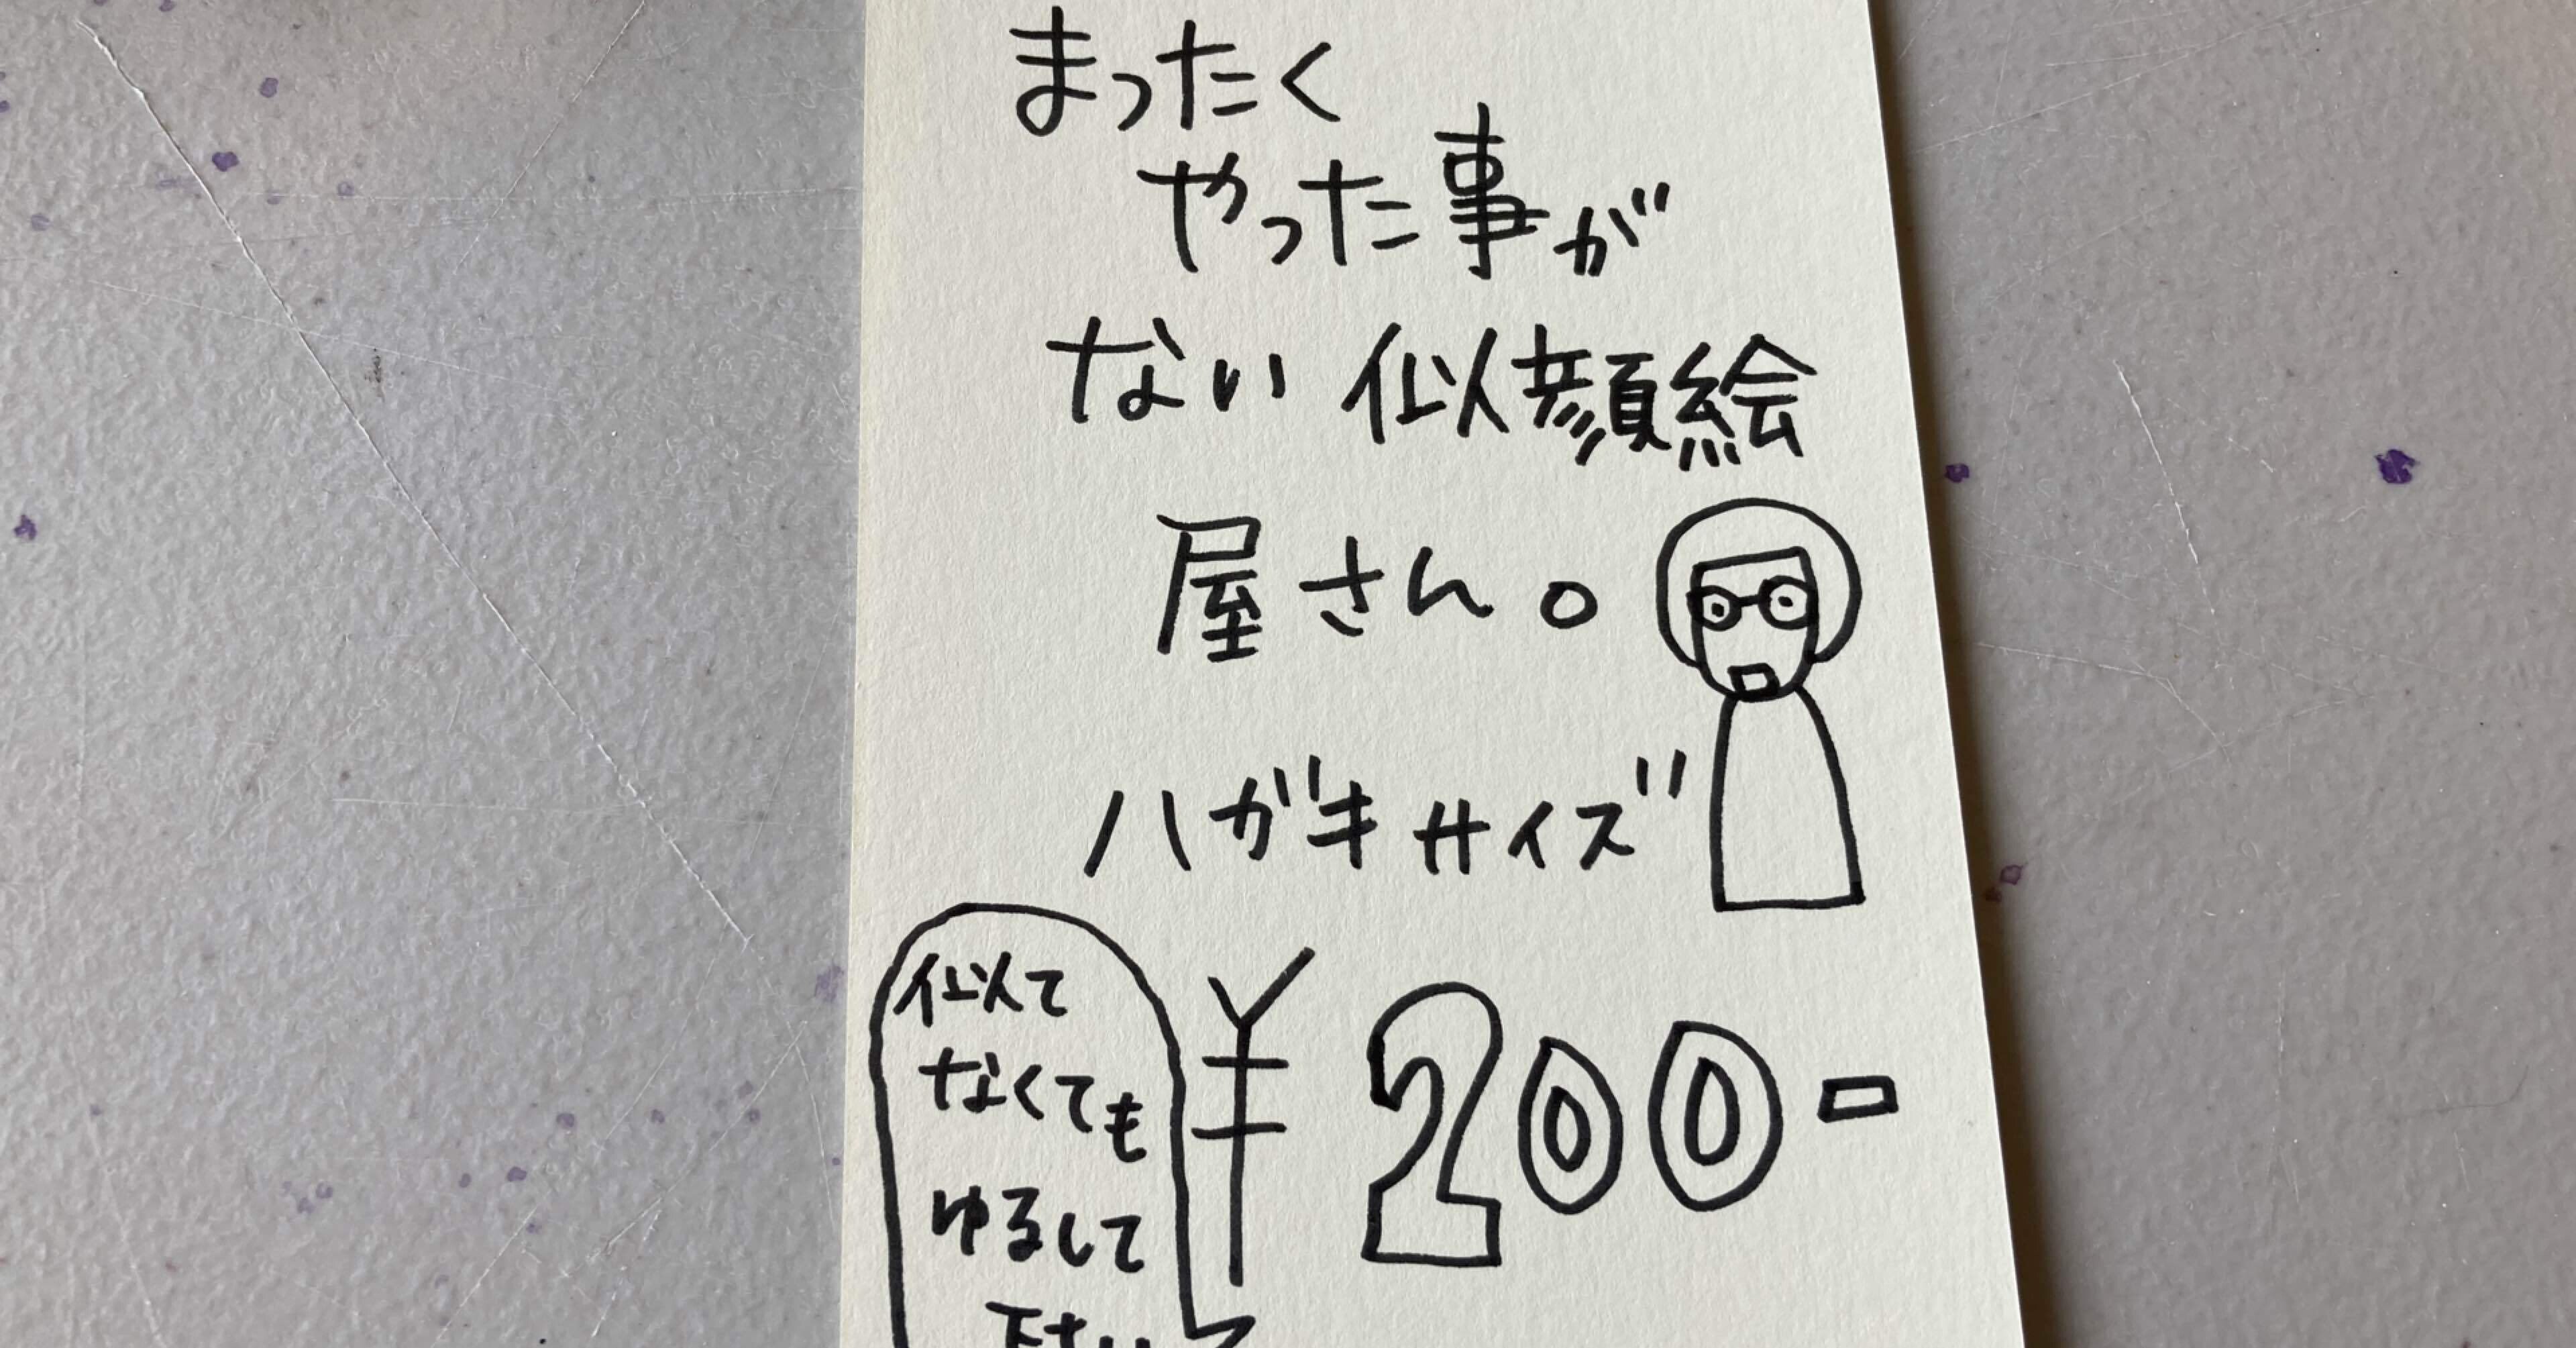 まったく
やった事が
ない似顔絵
屋さん。
ハガキサイズ
¥200-
似て
なくても
ゆるして
下さい